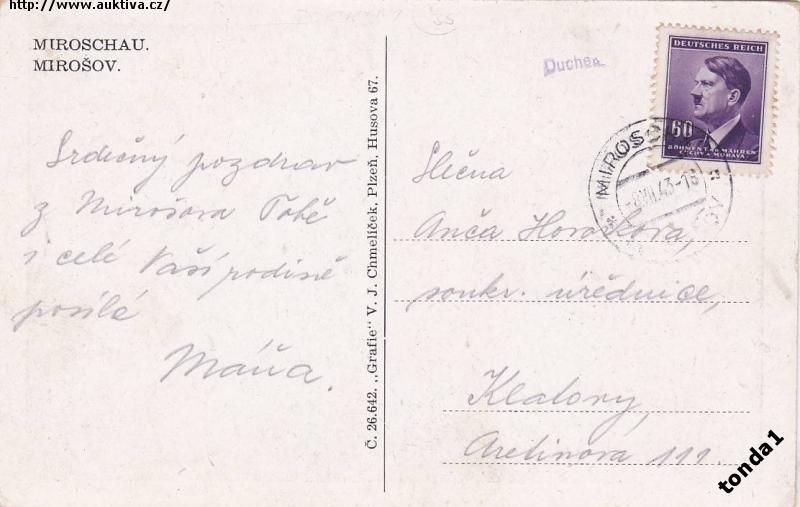 http://www.auktiva.cz/
MIROSCHAU.
MIROŠOV.
Srdečný pozdrav
z Mirošova Tobě
i celé Vaší rodině
posílá
Máňa.
Č. 26.642. „Grafie“ V. J. Chmelíček, Plzeň, Husova 67.
DEUTSCHES REICH
60
BÖHMEN U. MÄHREN
ČECHY A MORAVA
Slečna
Anča Horáková,
soukr. úřednice,
Klatovy,
111.
tonda1